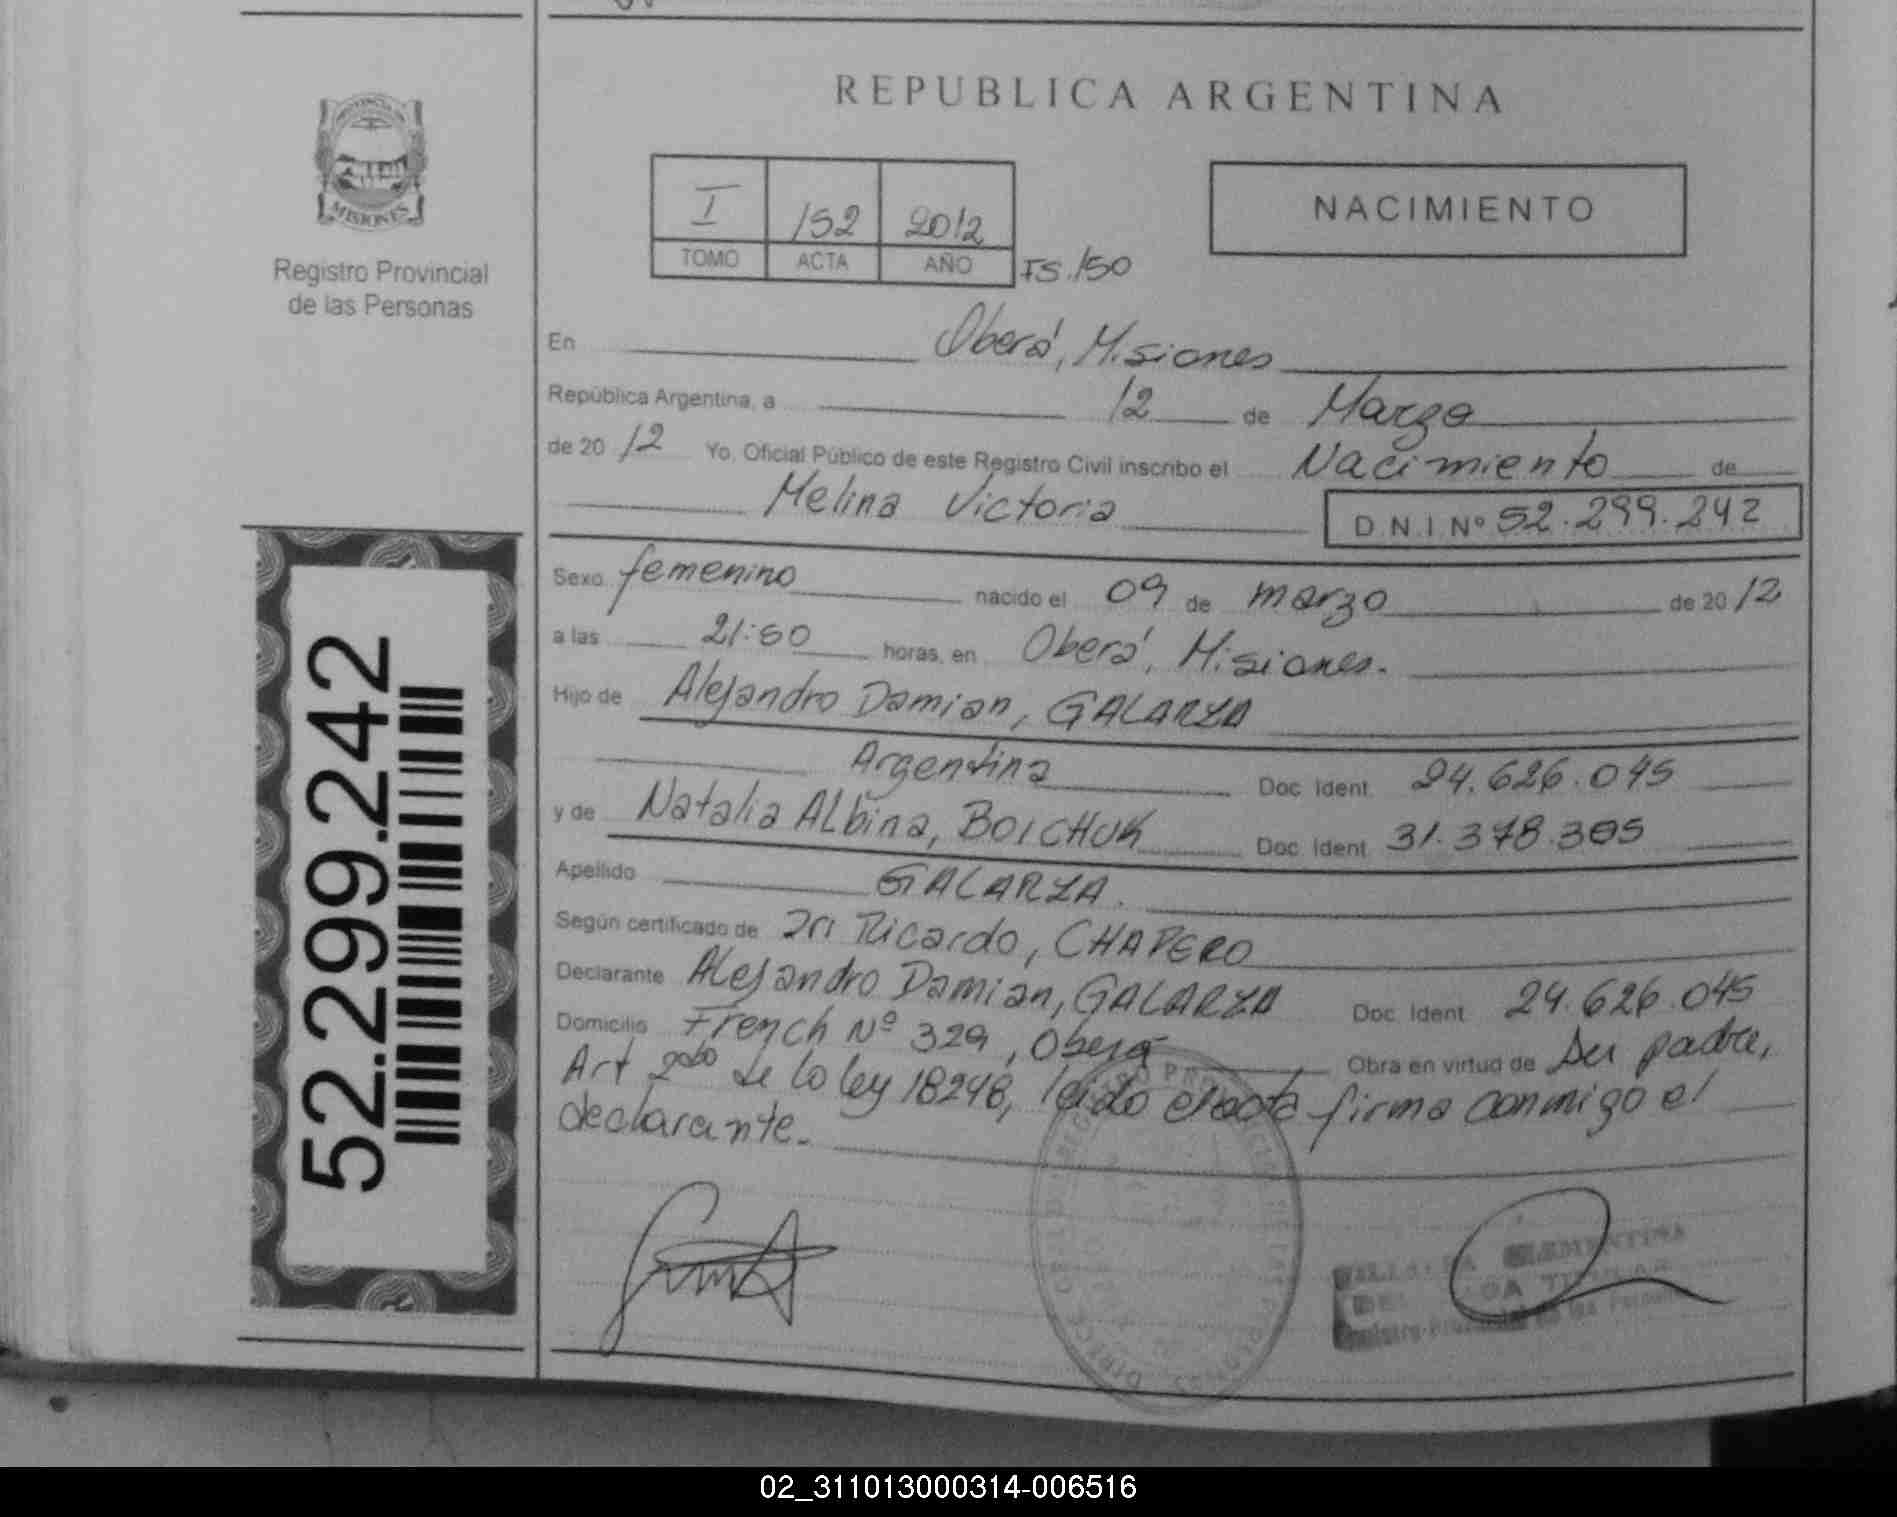 REPUBLICA ARGENTINA
PROVINCIA
MISIONES
Registro Provincial
de las Personas
I 152 2012
TOMO ACTA AÑO FS.150
NACIMIENTO
En Oberá, Misiones
República Argentina, a 12 de Marzo
de 2012 Yo, Oficial Público de este Registro Civil inscribo el Nacimiento de
Melina Victoria D.N.I. Nº 52.299.242
Sexo femenino nacido el 09 de marzo de 2012
a las 21:50 horas, en Oberá, Misiones.
Hijo de Alejandro Damian, GALARZA
Argentina Doc. Ident. 24.626.045
y de Natalia ALbina, BOICHUK Doc. Ident. 31.378.305
Apellido GALARZA.
Según certificado de Dr. Ricardo, CHAPERO
Declarante ALejandro Damian, GALARZA Doc. Ident. 24.626.045
Domicilio French Nº 329, Oberá Obra en virtud de Su padre,
Art 2do de la ley 18248, leido el acta firma conmigo el
declarante.
52.299.242
02_311013000314-006516